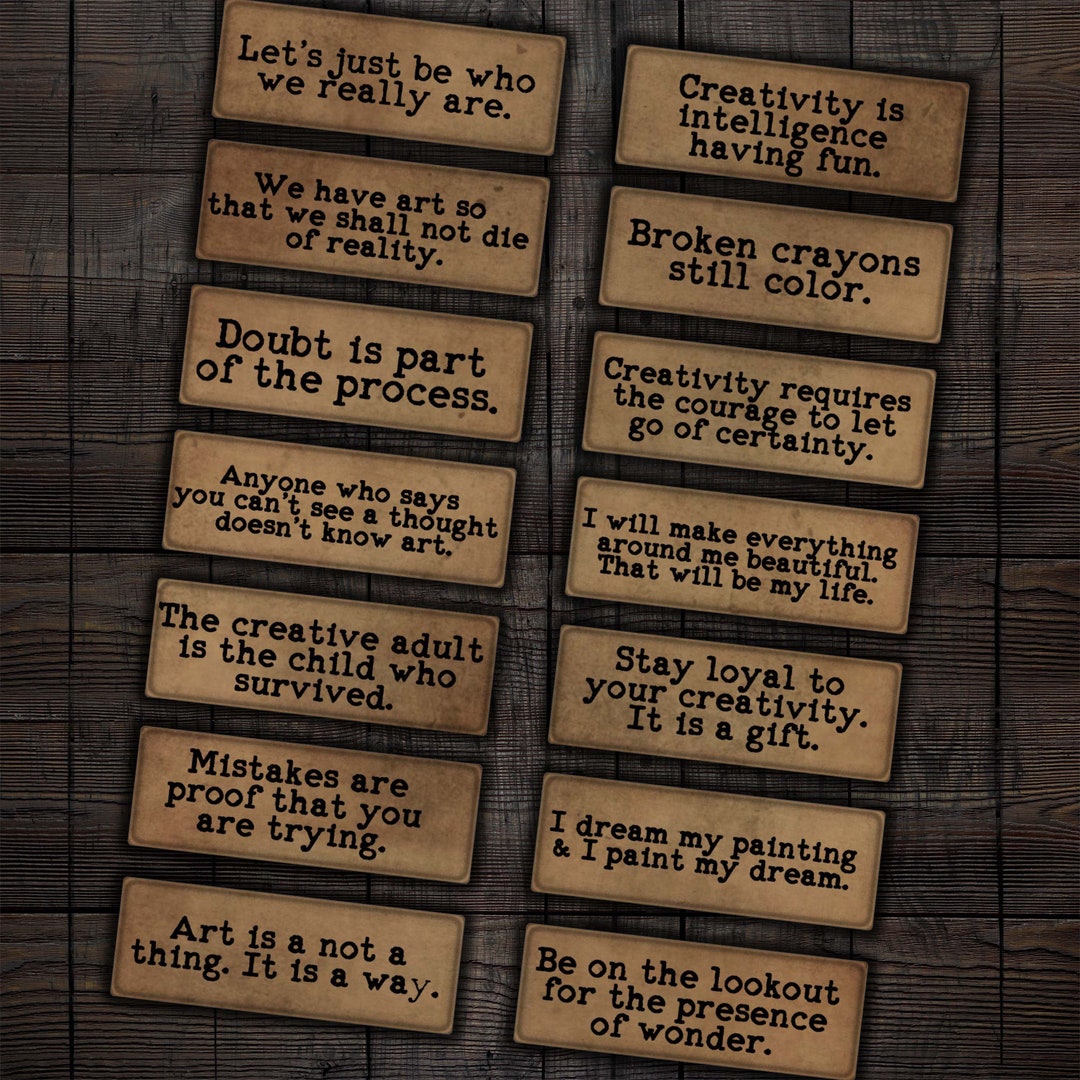 Let's just be who
we really are.
We have art so
that we shall not die
of reality.
Doubt is part
of the process.
Anyone who says
you can't see a thought
doesn't know art.
The creative adult
is the child who
survived.
Mistakes are
proof that you
are trying.
Art is a not a
thing. It is a way.
Creativity is
intelligence
having fun.
Broken crayons
still color.
Creativity requires
the courage to let
go of certainty.
I will make everything
around me beautiful.
That will be my life.
Stay loyal to
your creativity.
It is a gift.
I dream my painting
& I paint my dream.
Be on the lookout
for the presence
of wonder.